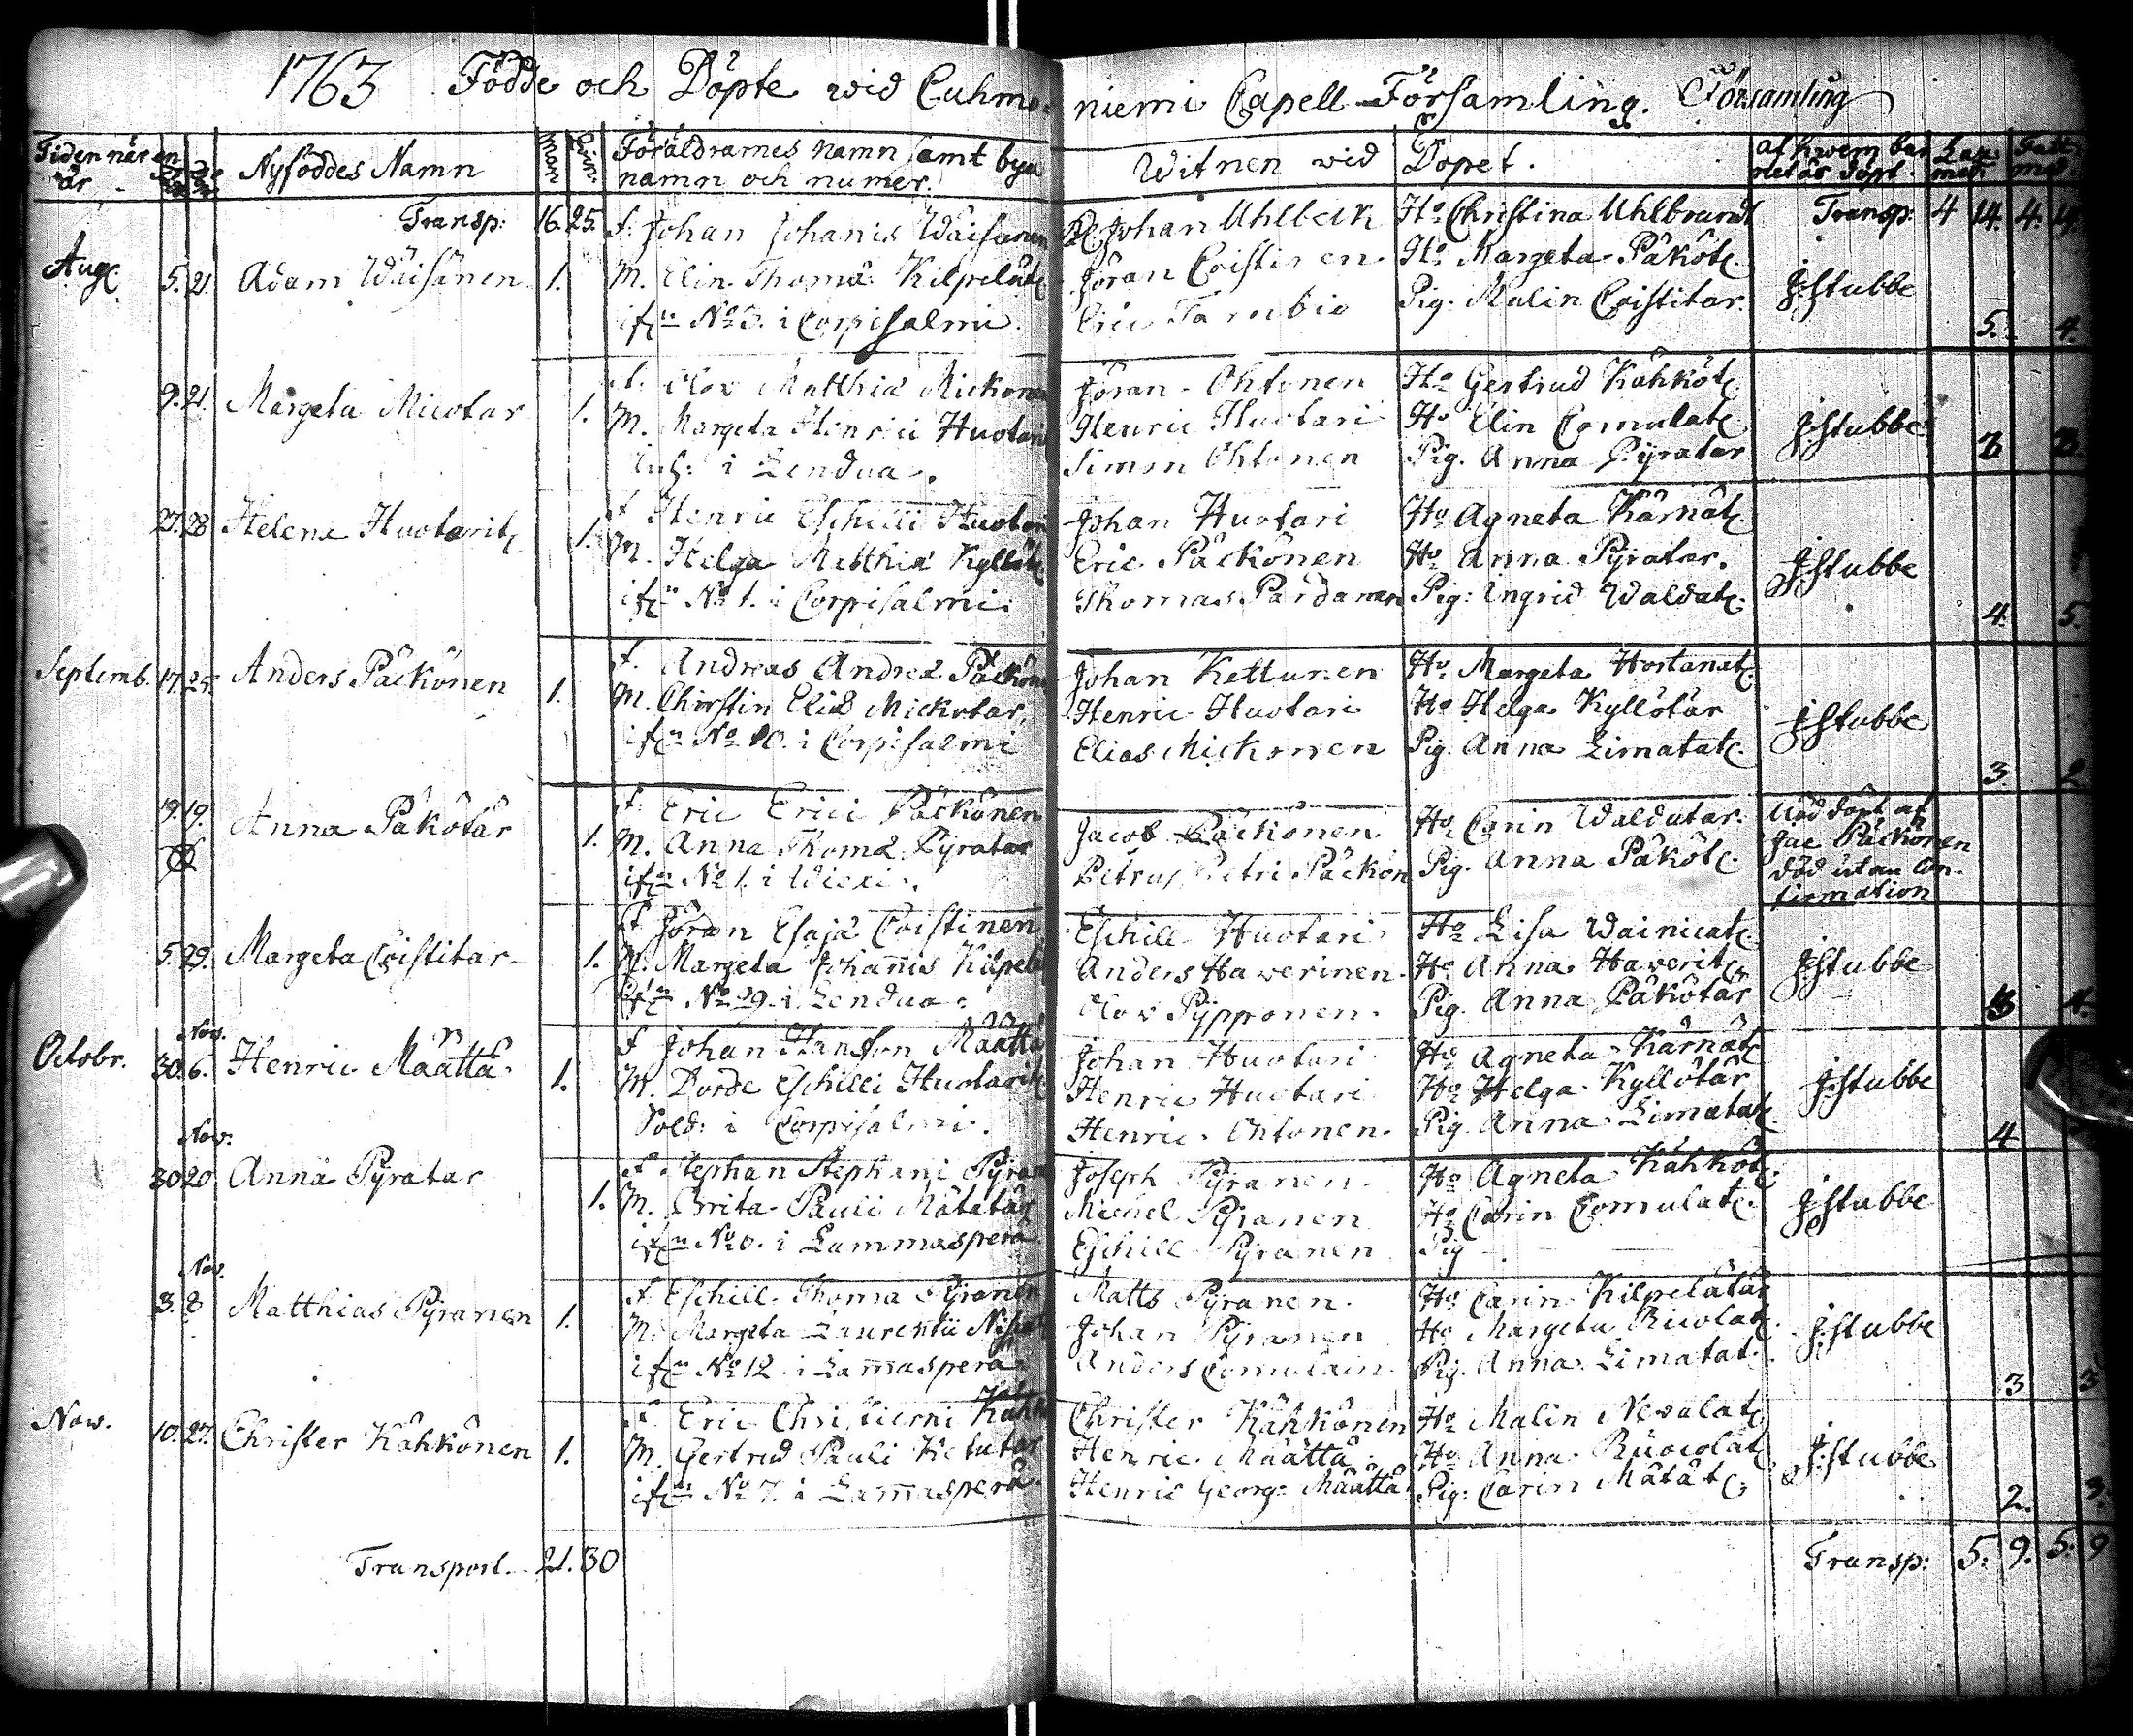 1763 Födde och Döpte wid Cuhmo- niemi Capell Församling. Församling
Tiden när en är
Nyföddes Namn
Man
Föräldrarnes namn samt bya namn och numer.
Witnen wid Dopet.
af hwem bar netär döpt.
Transp: 16. 25.
Transp: 4 14. 4.
Aug. 5. 21. Adam Wäisänen 1.
f. Johan Johanis Wäisänen
M. Elin Thomæ Kilpelät.
No 3. i Corpisalmi.
Johan Uhlbeck
Jöran Coistinen.
Eric
Ho Christina Uhlbrandt
Ho Margeta Päköt.
Pig. Malin Coistitar.
J:Stubbe
5. 4.
9. 21. Margeta Micotar 1.
f. Olov Matthiæ Mickonen
M. Margeta Henrici Huotari
i Lendua.
Jöran Ohtonen
Henric Huotari
Simon Ohtonen
Ho Gertrud Kähköt.
Ho Elin Comulat.
Pig. Anna Pyratar
J:Stubbe
27. 28 Helena Huotarit. 1.
f Henric Eschilli Huotari
M. Helga Matthiæ Kyllöt.
No 1. i Corpisalmi.
Johan Huotari
Eric Päckönen
Thomas Pardanen
Ho Agneta Kärnät.
Ho Anna Pyratar.
Pig: Ingrid Waldat.
J:Stubbe
4. 5.
Septemb. 17. 25. Anders Päckönen 1.
f. Andreas Andreæ Päckönen
M. Chirstin Eliæ Mickotar.
No 10. i Corpisalmi
Johan Kettunen
Henric Huotari
Elias Mickonen
Ho Margeta Hortanat.
Ho Helga Kyllötär
Pig. Anna Limatat.
J:Stubbe
3. 2.
19. 19. Anna Päkötär 1.
f. Eric Erici Päckönen
M. Anna Thomæ Pyratar
No 1. i Wiexi.
Jacob Päckönen
Petrus Petri Päckön
Ho Carin Waldatar.
Pig. Anna Päköt.
Nöd döpt af
Jac Päckönen
död utan Con-
firmation
5. 29. Margeta Coistitar 1.
f Jöran Esajæ Coistinen
M. Margeta Johannis Kilpelä
No 29. i Lendua.
Eschill Huotari
Anders Hawerinen.
Olov Pypponen.
Ho Lisa Wainicat.
Ho Anna Hawerit.
Pig. Anna Päkötär
J:Stubbe
Nov.
Octobr. 30. 6. Henric Määttä. 1.
f Johan Hansson Määttä
M. Dorde Eschilli Huotarit.
Sold: i Corpisalmi.
Johan Huotari
Henric Huotari
Henric Ohtonen.
Ho Agneta Kärnät.
Ho Helga Kyllötär
Pig. Anna Limatat.
J:Stubbe
4
Nov.
30 20 Anna Pyratar 1.
f Stephan Stephani Pyran
M. Brita Pauli Mätatär
i Lammasperä
Joseph Pyranen.
Michel Pyranen
Eschill Pyranen
Ho Agneta Kähköt.
Ho Carin Comulat.
Pig
J:Stubbe
Nov.
3. 8 Matthias Pyranen 1.
f Eschill Thomæ Pyranen
M. Margeta Laurentii
No 12. i Lam̄asperä
Matts Pyranen.
Johan Pyranen
Anders Comulain.
Ho Carin Kilpelätär
Ho Margeta Ricolat.
Pig. Anna Limatat.
J:Stubbe
3 3
Now. 10. 27. Christer Kähkönen 1.
f Eric Christierni Kähk
M. Gertrud Pauli Ketutar
No 7. i Lam̄asperä.
Christer Kähkönen
Henric Määttä
Henric Georg: Määttä
Ho Malin Nevalat.
Ho Anna
Pig: Carin Mätät.
J:Stubbe
2. 3.
Transport. 21. 30
Transp: 5. 9. 5. 9